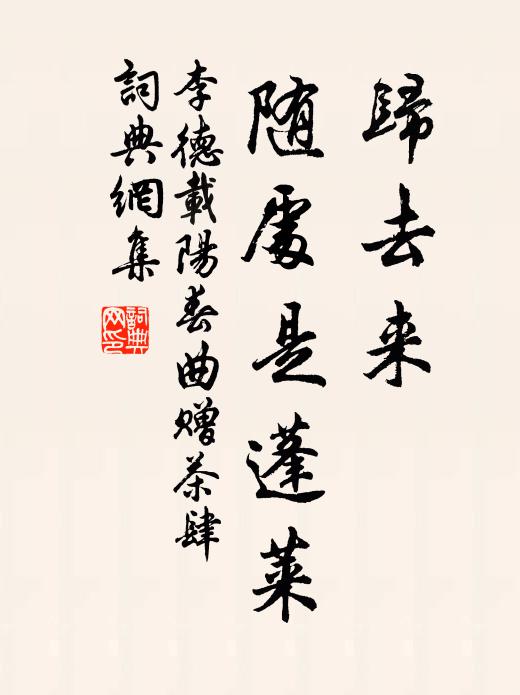 歸去来
随處是蓬萊
李德載陽春曲贈茶肆
詞典網集
詞典
网印